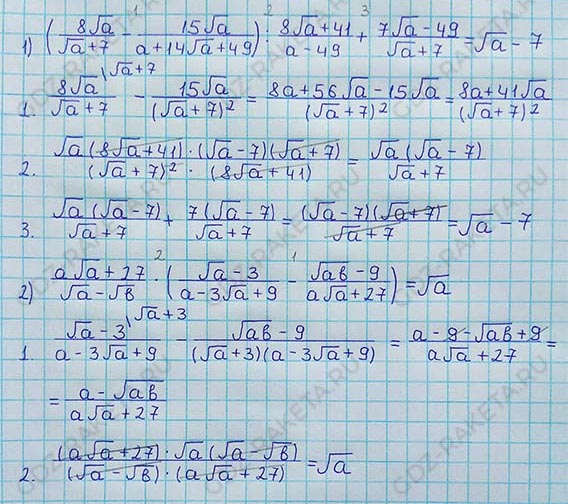 1) (8√a/(√a+7) - 15√a/(a+14√a+49)) : (8√a+41)/(a-49) + (7√a-49)/(√a+7) = √a-7
1. 8√a/(√a+7) \√a+7 - 15√a/(√a+7)² = (8a+56√a-15√a)/(√a+7)² = (8a+41√a)/(√a+7)²
2. (√a(8√a+41)·(√a-7)(√a+7))/((√a+7)²·(8√a+41)) = √a(√a-7)/(√a+7)
3. √a(√a-7)/(√a+7) + 7(√a-7)/(√a+7) = (√a-7)(√a+7)/(√a+7) = √a-7
2) (a√a+27)/(√a-√b) · ((√a-3)/(a-3√a+9) - (√ab-9)/(a√a+27)) = √a
1. (√a-3)/(a-3√a+9) \√a+3 - (√ab-9)/((√a+3)(a-3√a+9)) = (a-9-√ab+9)/(a√a+27) =
= (a-√ab)/(a√a+27)
2. ((a√a+27)·√a(√a-√b))/((√a-√b)·(a√a+27)) = √a
GDZ-RAKETA.RU